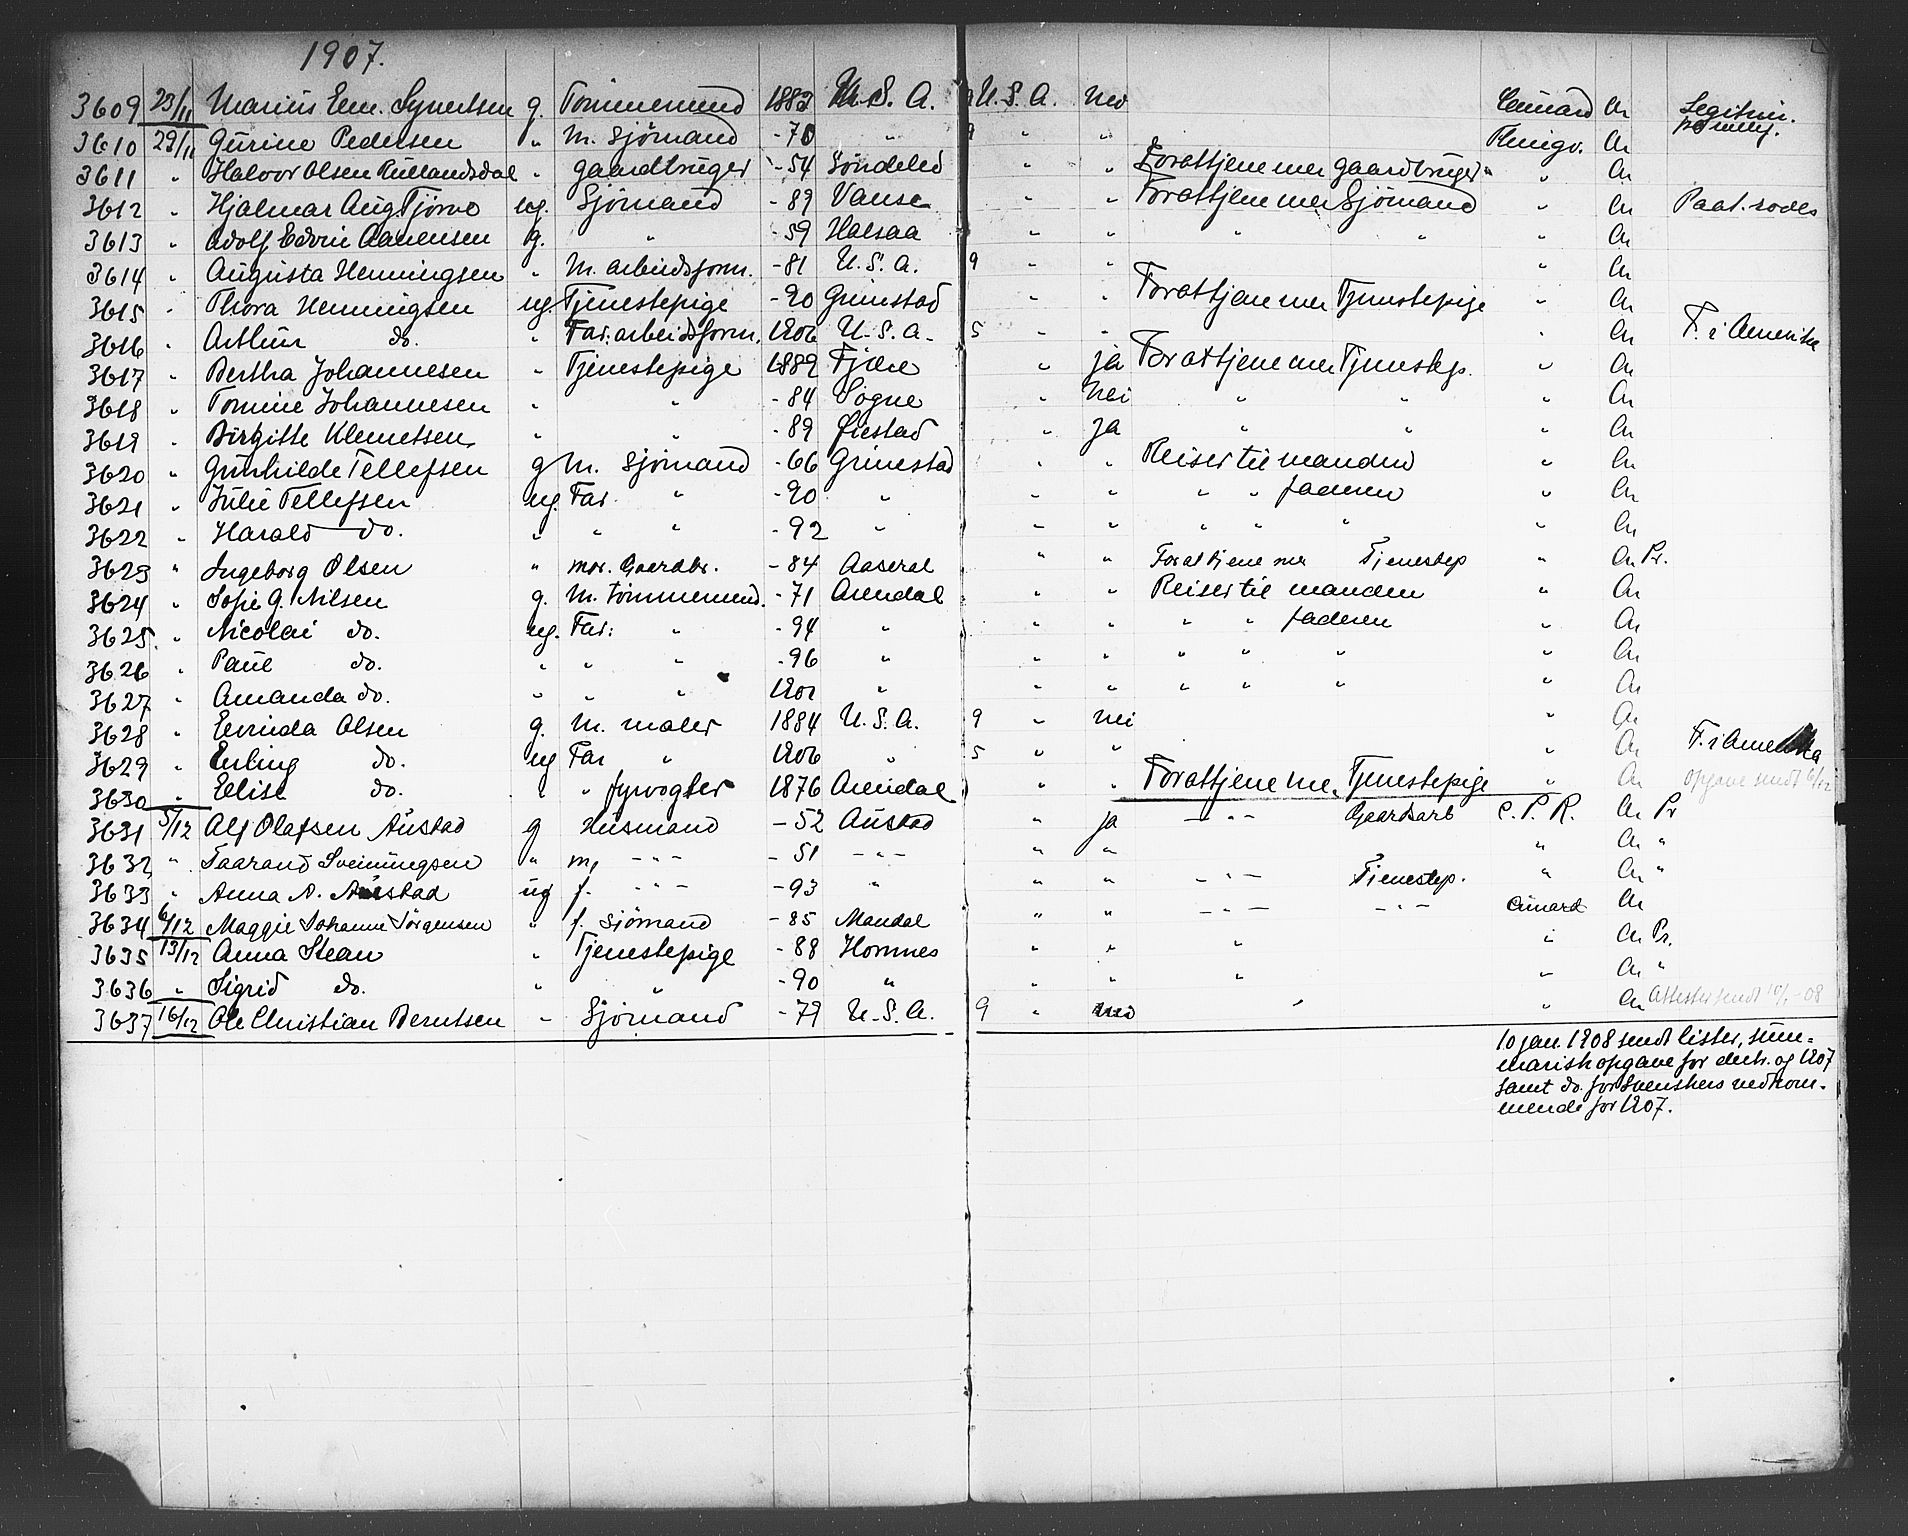 1907.
3609 23/11 Marius Em. Syvertsen g. Tømmermand 1882 U.S.A. 9 U.S.A. nei Cunard An Legitim. pr
3610 29/11 Gurine Pedersen " M. Sjømand -70 " 9 " " Kingv. An
3611 " Halvor Olsen Rullandsdal " gaardbruger -54 Søndeled " " For at tjene mer gaardbruger " An
3612 " Hjalmar Aug Tjørve ug. Sjømand -89 Vanse " " For at tjene mer Sjømand An Paat. rodes
3613 " Adolf Edvin Aanensen g. " -59 Halsaa " " " " " An
3614 " Augusta Henningsen " M. arbeidsform. -81 U.S.A. 9 " " " An
3615 " Thora Henningsen ug. Tjenestepige -90 Grimstad " " For at tjene mer Tjenestepige " An
3616 " Arthur do. " Far: arbeidsform. 1906 U.S.A. 5 " " " An F. i Amerika
3617 " Bertha Johannesen " Tjenestepige 1889 Fjære " ja For at tjene mer Tjenestep. " An
3618 " Tomine Johannesen " " -84 Søgne " nei " " " An
3619 " Birgitte Klemetsen " " -89 Øiestad " ja " " " An
3620 " Gunhilde Tellefsen g M. Sjømand -66 Grimstad " " Reiser til manden " An
3621 " Julie Tellefsen ug. Far. " -90 " " " " " faderen " An
3622 " Harald do. " " " -92 " " " " " " " An
3623 " Ingeborg Olsen " mor. Gaardbr. -84 Aaseral " " For at tjene mer Tjenestep " An Pr.
3624 " Sofie G. Nilsen g. M. tømmermand. -71 Arendal " " Reiser til manden " An
3625. " Nicolai do. ug. Far: " -94 " " " " " faderen " An
3626 " Paul do. " " " -96 " " " " " " " An
3627 " Amanda do. " " " 1901 " " " " " " " An
3628 " Evinda Olsen g. M. maler 1884 U.S.A. 9 " nei " An
3629 " Erling do. ug Far " 1906 " 5 " " " An F. i Amerika
3630 " Elise do. " " fyrvogter 1876 Arendal " " For at tjene mer Tjenestepige " An opgave sendt 6/12
3631 5/12 Alf Olafsen Austad g Husmand -52 Austad " ja - " - Gaardarb C.P.R. An Pr
3632 " Taarand Sveinungsen " m, - " - -51 - " - " " " An "
3633 " Anna A. Austad ug f. - " - -93 " " " - " - Tjenestep. " An "
3634 6/12 Maggie Johanne Jørgensen " f. sjömand -85 Mandal " " - " - - " - Cunard An
3635 13/12 Anna Stean " Tjenestepige -88 Hornnes " " " " An Pr.
3636 " Sigrid do. " " -90 " " " " " An "
3637 16/12 Ole Christian Berntsen " Sjømand -79 U.S.A. 9 " nei " " An Attester sendt 10/1-08
10 jan. 1908 sendt lister, sum=
marisk opgave for dectr. og 1907
samt do. for svenskers vedkom=
mende for 1907.